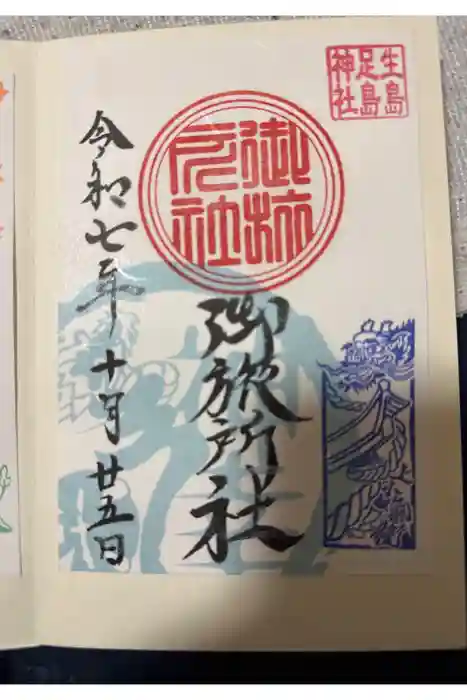 生島
足島
神社
御旅所社
御旅
所社
令和七年十月廿五日